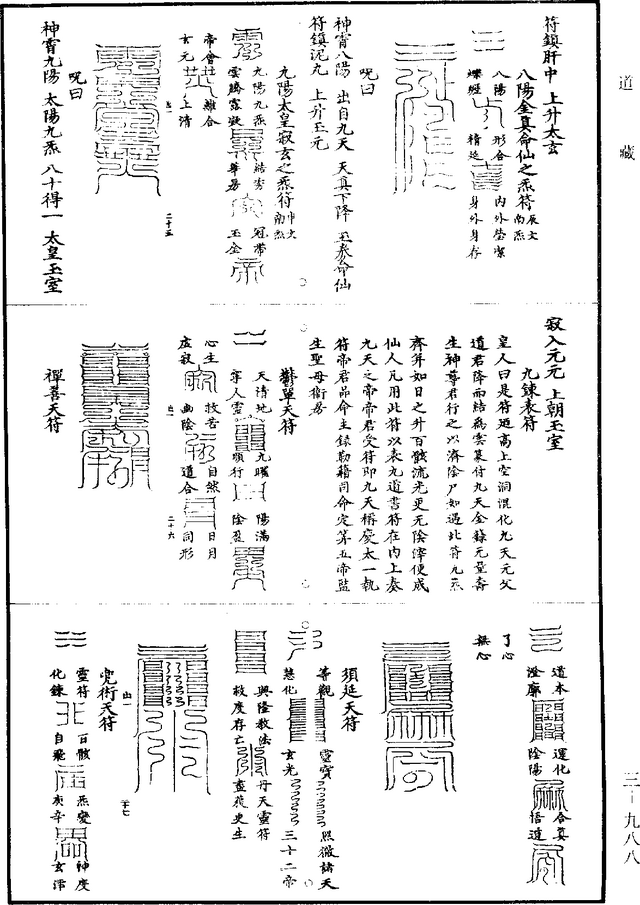 道藏
符鎮肝中 上升太玄
八陽金真命仙之炁符 辰文 南炁
八陽 形合 內外瑩潔
蟬經 精延 身外身存
咒曰
神霄八陽 出自九天 天真下降 玉泰命仙
符鎮泥丸 上升玉元
九陽太皇寂玄之炁符 中文 南炁
九陽九炁 結雲 冠帶
雲騰霧凝 華易 玉全
帝會 離合
玄元 上清
廿一
二十五
咒曰
神霄九陽 太陽九炁 八十得一 太皇玉室
寂入元元 上朝玉室
九鍊表符
皇人曰是符迺高上空洞混化九天元父
道君降而結為雲篆付九天金籙元量壽
生神尊君行之以濟陰尸如遇此符九炁
齊年如日之升百骸流光更无陰滓便成
仙人凡用此符以表九道書符在內上奏
九天之帝帝君受符即九天稱慶太一執
符帝君品命主錄勒籍司命定筭五帝監
生聖母衛房
鬱單天符
天清地 九曜 陽滿
寧人靈 順行 陰盈
心主 救苦 自然 日月
虛寂 幽陰 道合 同形
廿一
二十六
禪善天符
道本 運化 合真
澄廓 陰陽 悟道
了心
無心
須延天符
等觀 靈寶 照徹諸天
慧化 玄光 三十二帝
興隆教法 丹天靈符
救度存亡 晝夜更生
廿一
廿七
兜術天符
靈符 百骸 炁變 神度
化鍊 自飛 庚辛 玄澤
三－九八八